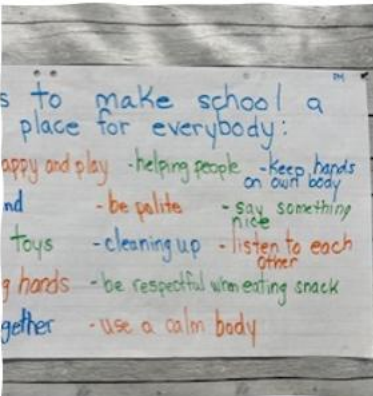 PM
s to make school a
place for everybody:
appy and play -helping people -keep hands
on own body
nd - be polite - say something
nice
toys -cleaning up - listen to each
other
g hands -be respectful when eating snack
gether - use a calm body